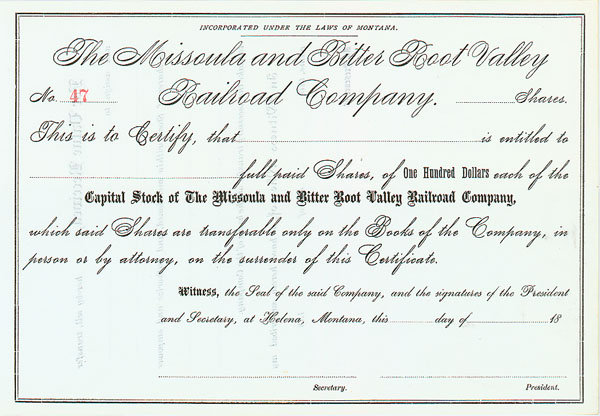 INCORPORATED UNDER THE LAWS OF MONTANA.
The Missoula and Bitter Root Valley
No. 47 Railroad Company. Shares.
This is to Certify, that is entitled to
full paid Shares, of One Hundred Dollars each of the
Capital Stock of The Missoula and Bitter Root Valley Railroad Company,
which said Shares are transferable only on the Books of the Company, in
person or by attorney, on the surrender of this Certificate.
Witness, the Seal of the said Company, and the signatures of the President
and Secretary, at Helena, Montana, this day of 18
Secretary. President.